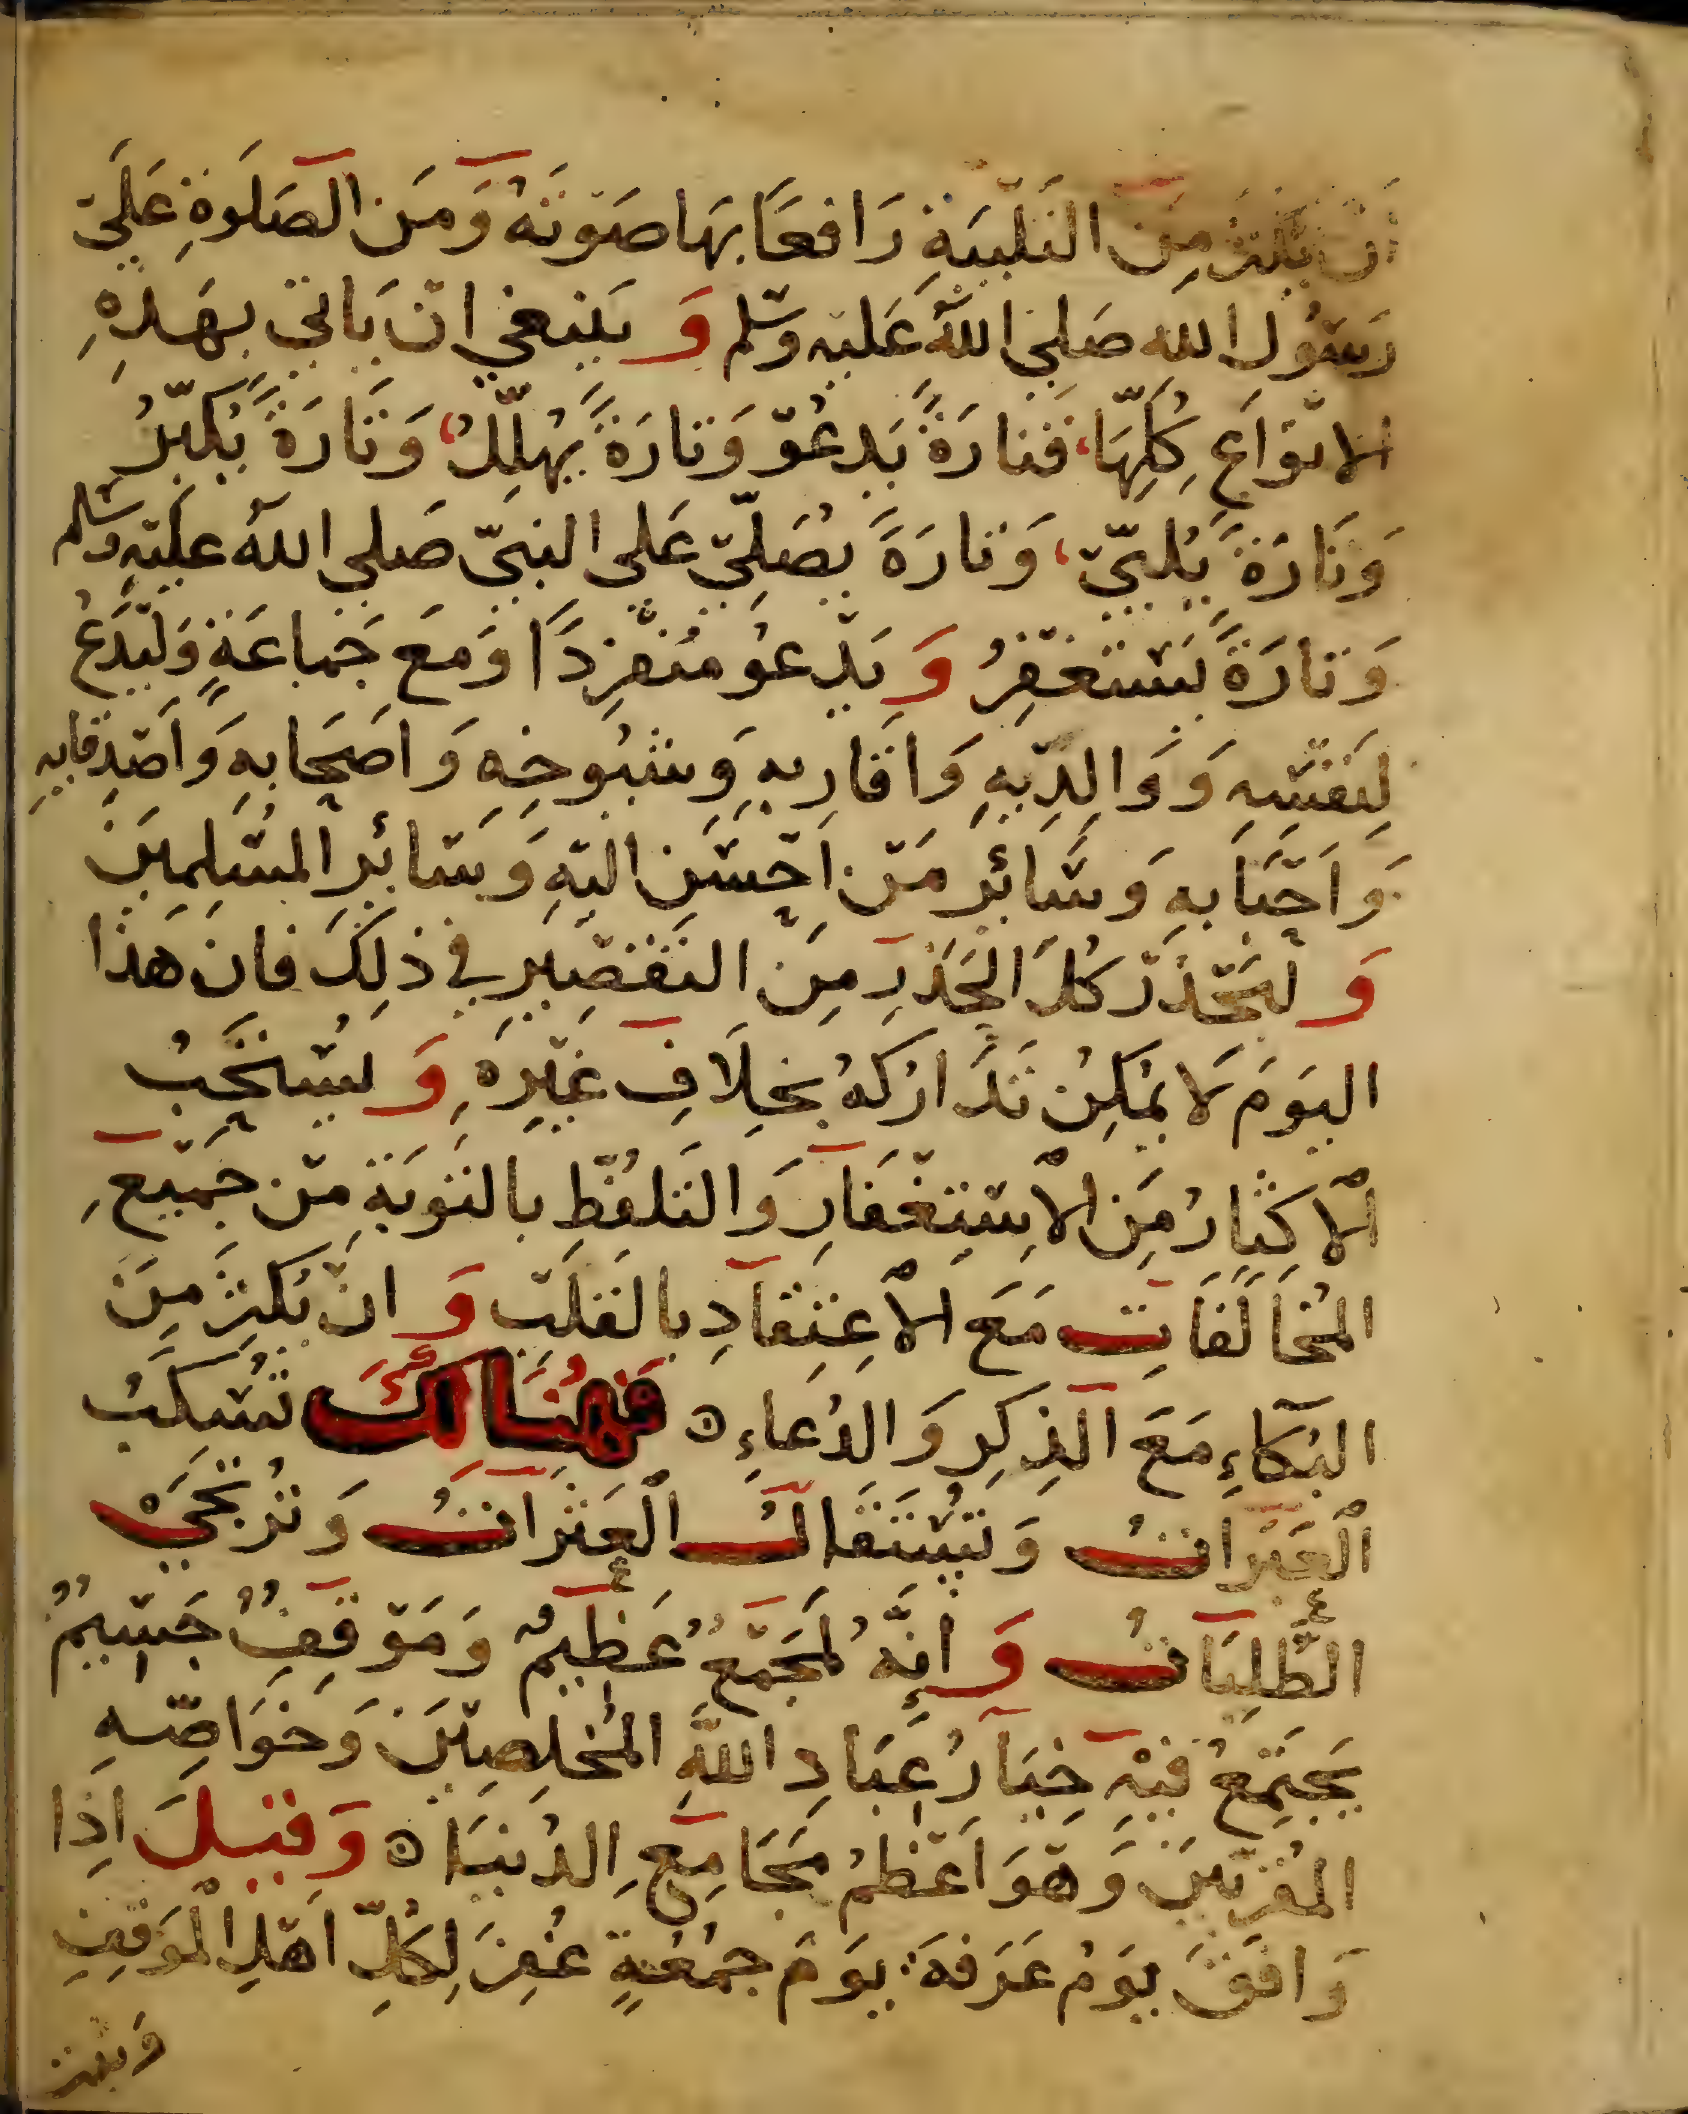 أَنْ يُكْثِرَ مِنَ التَّلْبِيَةِ رَافِعًا بِهَا صَوْتَهُ وَمِنَ الصَّلَوةِ عَلَى
رَسُولِ اللهِ صَلَّى اللهُ عَلَيْهِ وَسَلَّم وَيَنْبَغِي انْ يَاتِيَ بِهَذِهِ
الانْوَاعِ كُلِّهَا، فَتَارَةً يَدْعُوْ وَتَارَةً يُهَلِّلُ، وَتَارَةً يُكَبِّرُ
وَتَارَةً يُلَبِّيْ، وَتَارَةً يُصَلِّيْ عَلَى النَبِيّ صَلَى اللهُ عَلَيْهِ وَسَلم
وَتَارَةً يَسْتَغْفِرُ وَيَدْعُو مُنْفَرِدًا وَمَعَ جَمَاعَةٍ وَلْيَدْعُ
لِنَفْسِهِ وَوَالِدَيْهِ وَاقَارِبِهِ وَشُيُوخِهِ وَاصْحَابِهِ وَاصْدِقَايِهِ
وَاحْبَابِهِ وَسَائِرِ مَنْ احْسَنَ الَيْهِ وَسَائِرِ المُسْلِمِينَ
وَلْيَحْذَرْ كُلَ الحَذَرِ مِنَ التَقْصِيرِ فِي ذَلِكَ فَانَ هَذَا
اليَوْمَ لَا يُمْكِنُ تَدَارُكَهُ بِخِلَافِ غَيْرِهِ وَيُسْتَحَبُ
الْاكْثَارُ مِنَ الْاسْتِغْفَارِ وَالتَلَفُّظِ بِالتَوبَةِ مِنْ جَمِيْعِ
المُخَالَفَاتِ مَعَ الْاعْتِقَادِ بِالقَلْبِ وَانْ يُكْثِرَ مِنَ
البُكَاءِ مَعَ الذِكْرِ وَالدُعَاءِ ه فَهُنَالِكَ تُسْكَبُ
الْعَبَرَاتُ وَتُسْتَقَالُ الْعَثَرَاتُ وَتُرْتَجَىْ
الْطَّلِبَاتُ وَإِنَّهُ لَمَجْمَعٌ عَظِيمٌ وَمَوْقِفٌ جَسِيمٌ
يَجْتَمِعُ فِيْهِ خِيَارُ عِبَادِ اللهِ المُخْلِصِيْنَ وَخَوَاصِّهِ
المُقَرَّبِينَ وَهْوَ اعْظَمُ مَجَامِعِ الدُنْيَا ه وَقِيْلَ اذَا
وَافَقَ يَوْمُ عَرَفَةَ يَوْمَ جُمُعَةٍ غُفِرَ لِكُلِّ اهْلِ الْمَوْقِفِ